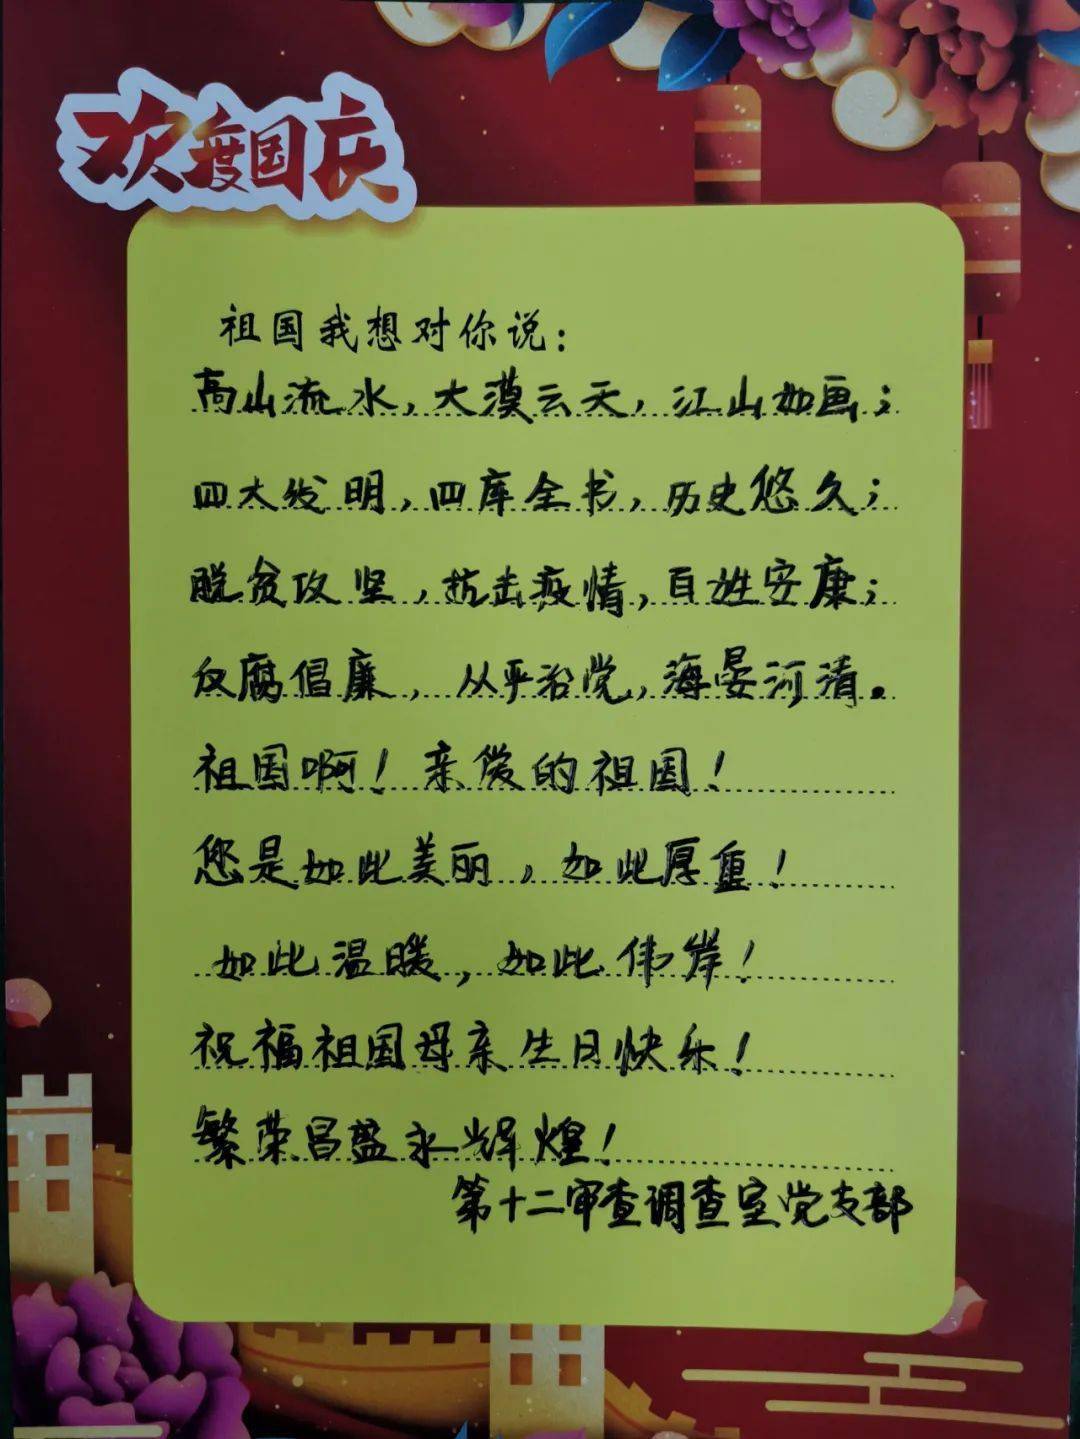 欢度国庆
祖国我想对你说：
高山流水，大漠云天，江山如画；
四大发明，四库全书，历史悠久；
脱贫攻坚，抗击疫情，百姓安康；
反腐倡廉，从严治党，海晏河清。
祖国啊！亲爱的祖国！
您是如此美丽，如此厚重！
如此温暖，如此伟岸！
祝福祖国母亲生日快乐！
繁荣昌盛永辉煌！
第十二审查调查室党支部